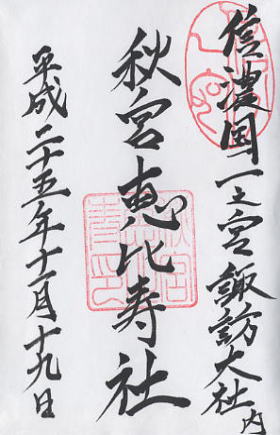 信濃国一之宮諏訪大社内
秋宮恵比寿社
平成二十五年十一月十九日